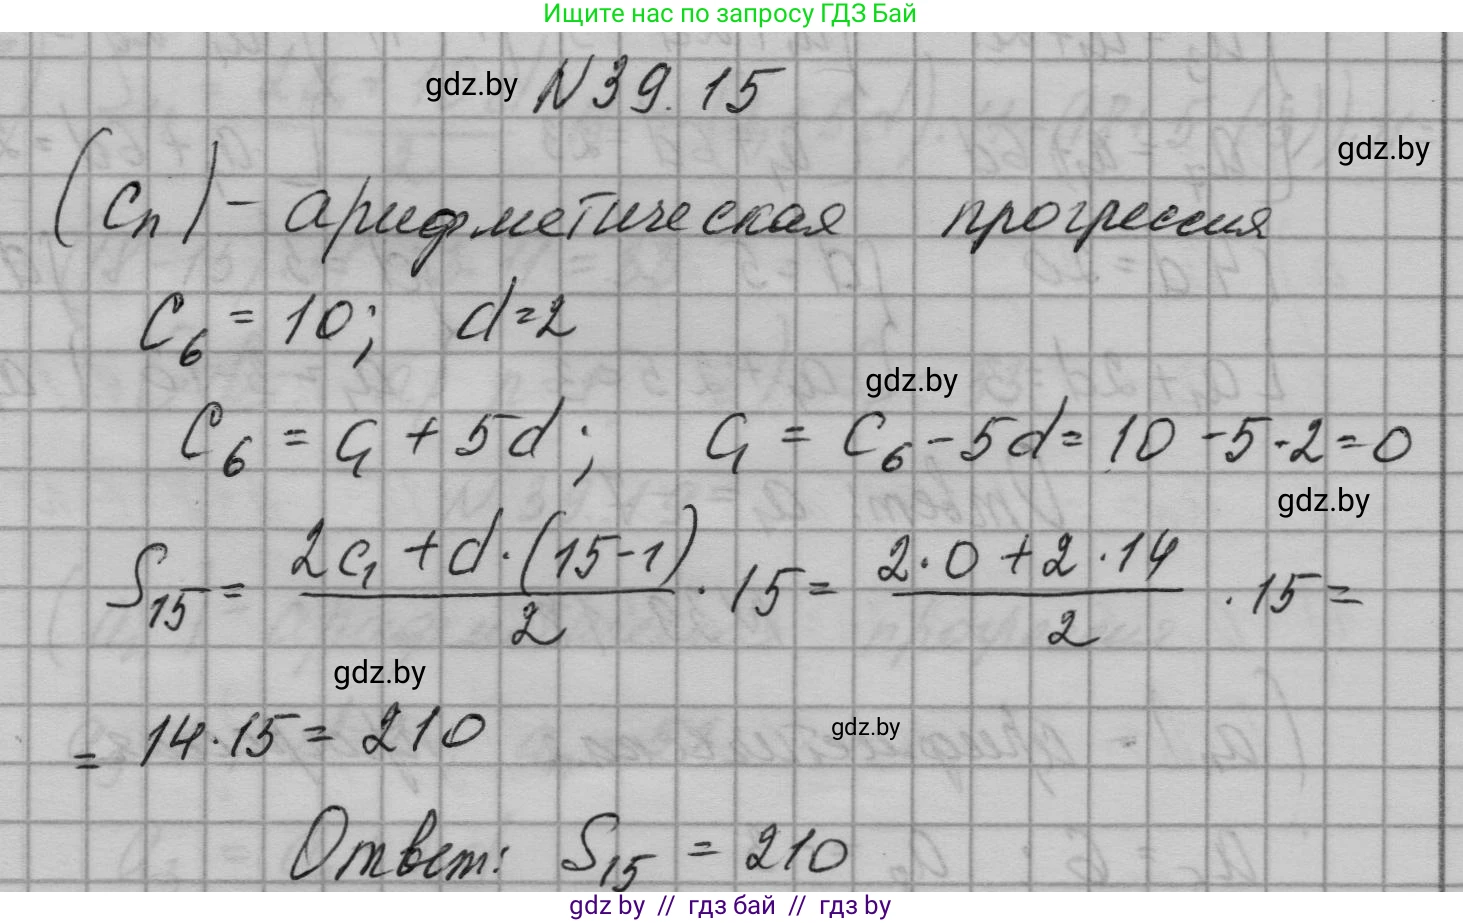 Ищите нас по запросу ГДЗ Бай
gdz.by N 39.15
gdz.by
(Cn) - арифметическая прогрессия
C6 = 10; d=2
gdz.by
C6 = C1 + 5d; C1 = C6 - 5d = 10 - 5 · 2 = 0
gdz.by
S15 = (2C1 + d · (15 - 1)) / 2 · 15 = (2 · 0 + 2 · 14) / 2 · 15 =
gdz.by
gdz.by
= 14 · 15 = 210
Ответ: S15 = 210
gdz.by // гдз бай // гдз by